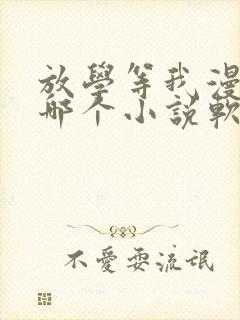 放學等我漫
哪个小説軟
不愛耍流氓